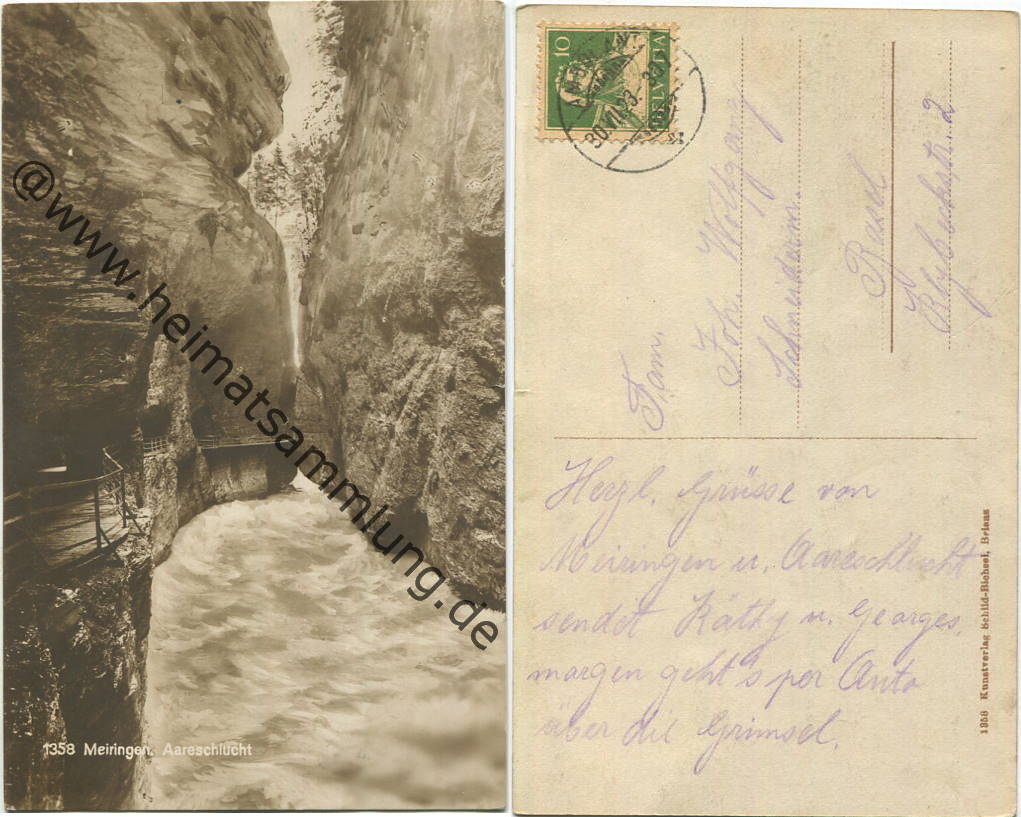 @www.heimatsammlung.de
1358 Meiringen. Aareschlucht
10 HELVETIA
Fam.
Joh. Wolfgang
Schneiderm.
Basel
Klybeckstr. 2
Herzl. Grüsse von
Meiringen u. Aareschlucht
sendet Käthy u. Georges.
morgen geht's per Auto
über die Grimsel.
1358 Kunstverlag Schild-Bichsel, Brienz